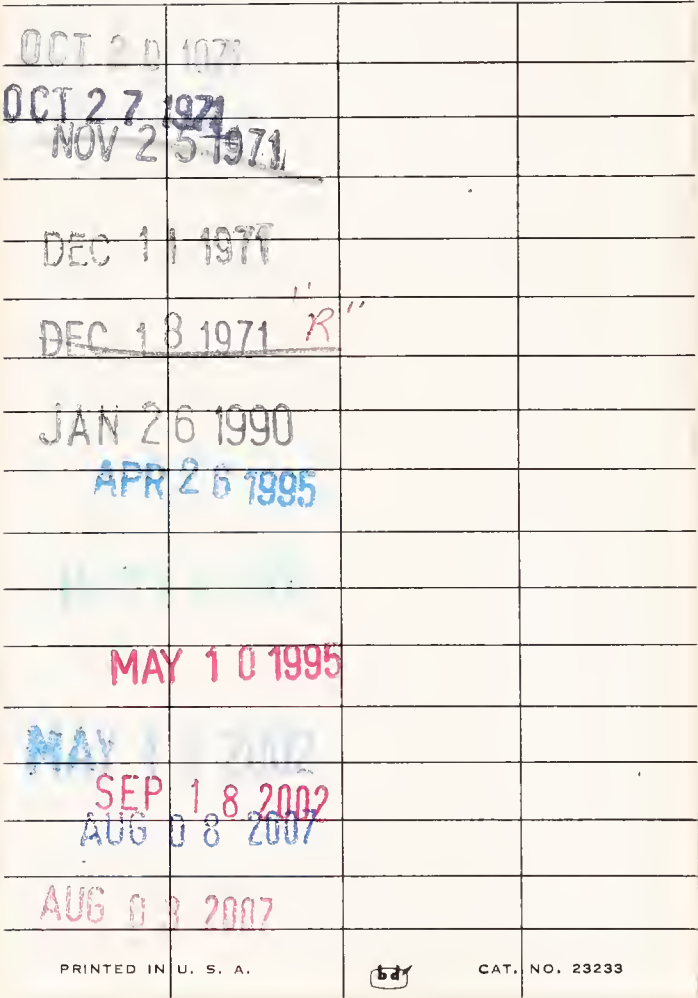 OCT 20 1971
OCT 27 1971
NOV 25 1971
DEC 11 1971
DEC 18 1971 "R"
JAN 26 1990
APR 26 1995
MAY 10 1995
MAY 2002
SEP 18 2002
AUG 08 2007
AUG 03 2007
PRINTED IN U. S. A. bd CAT. NO. 23233